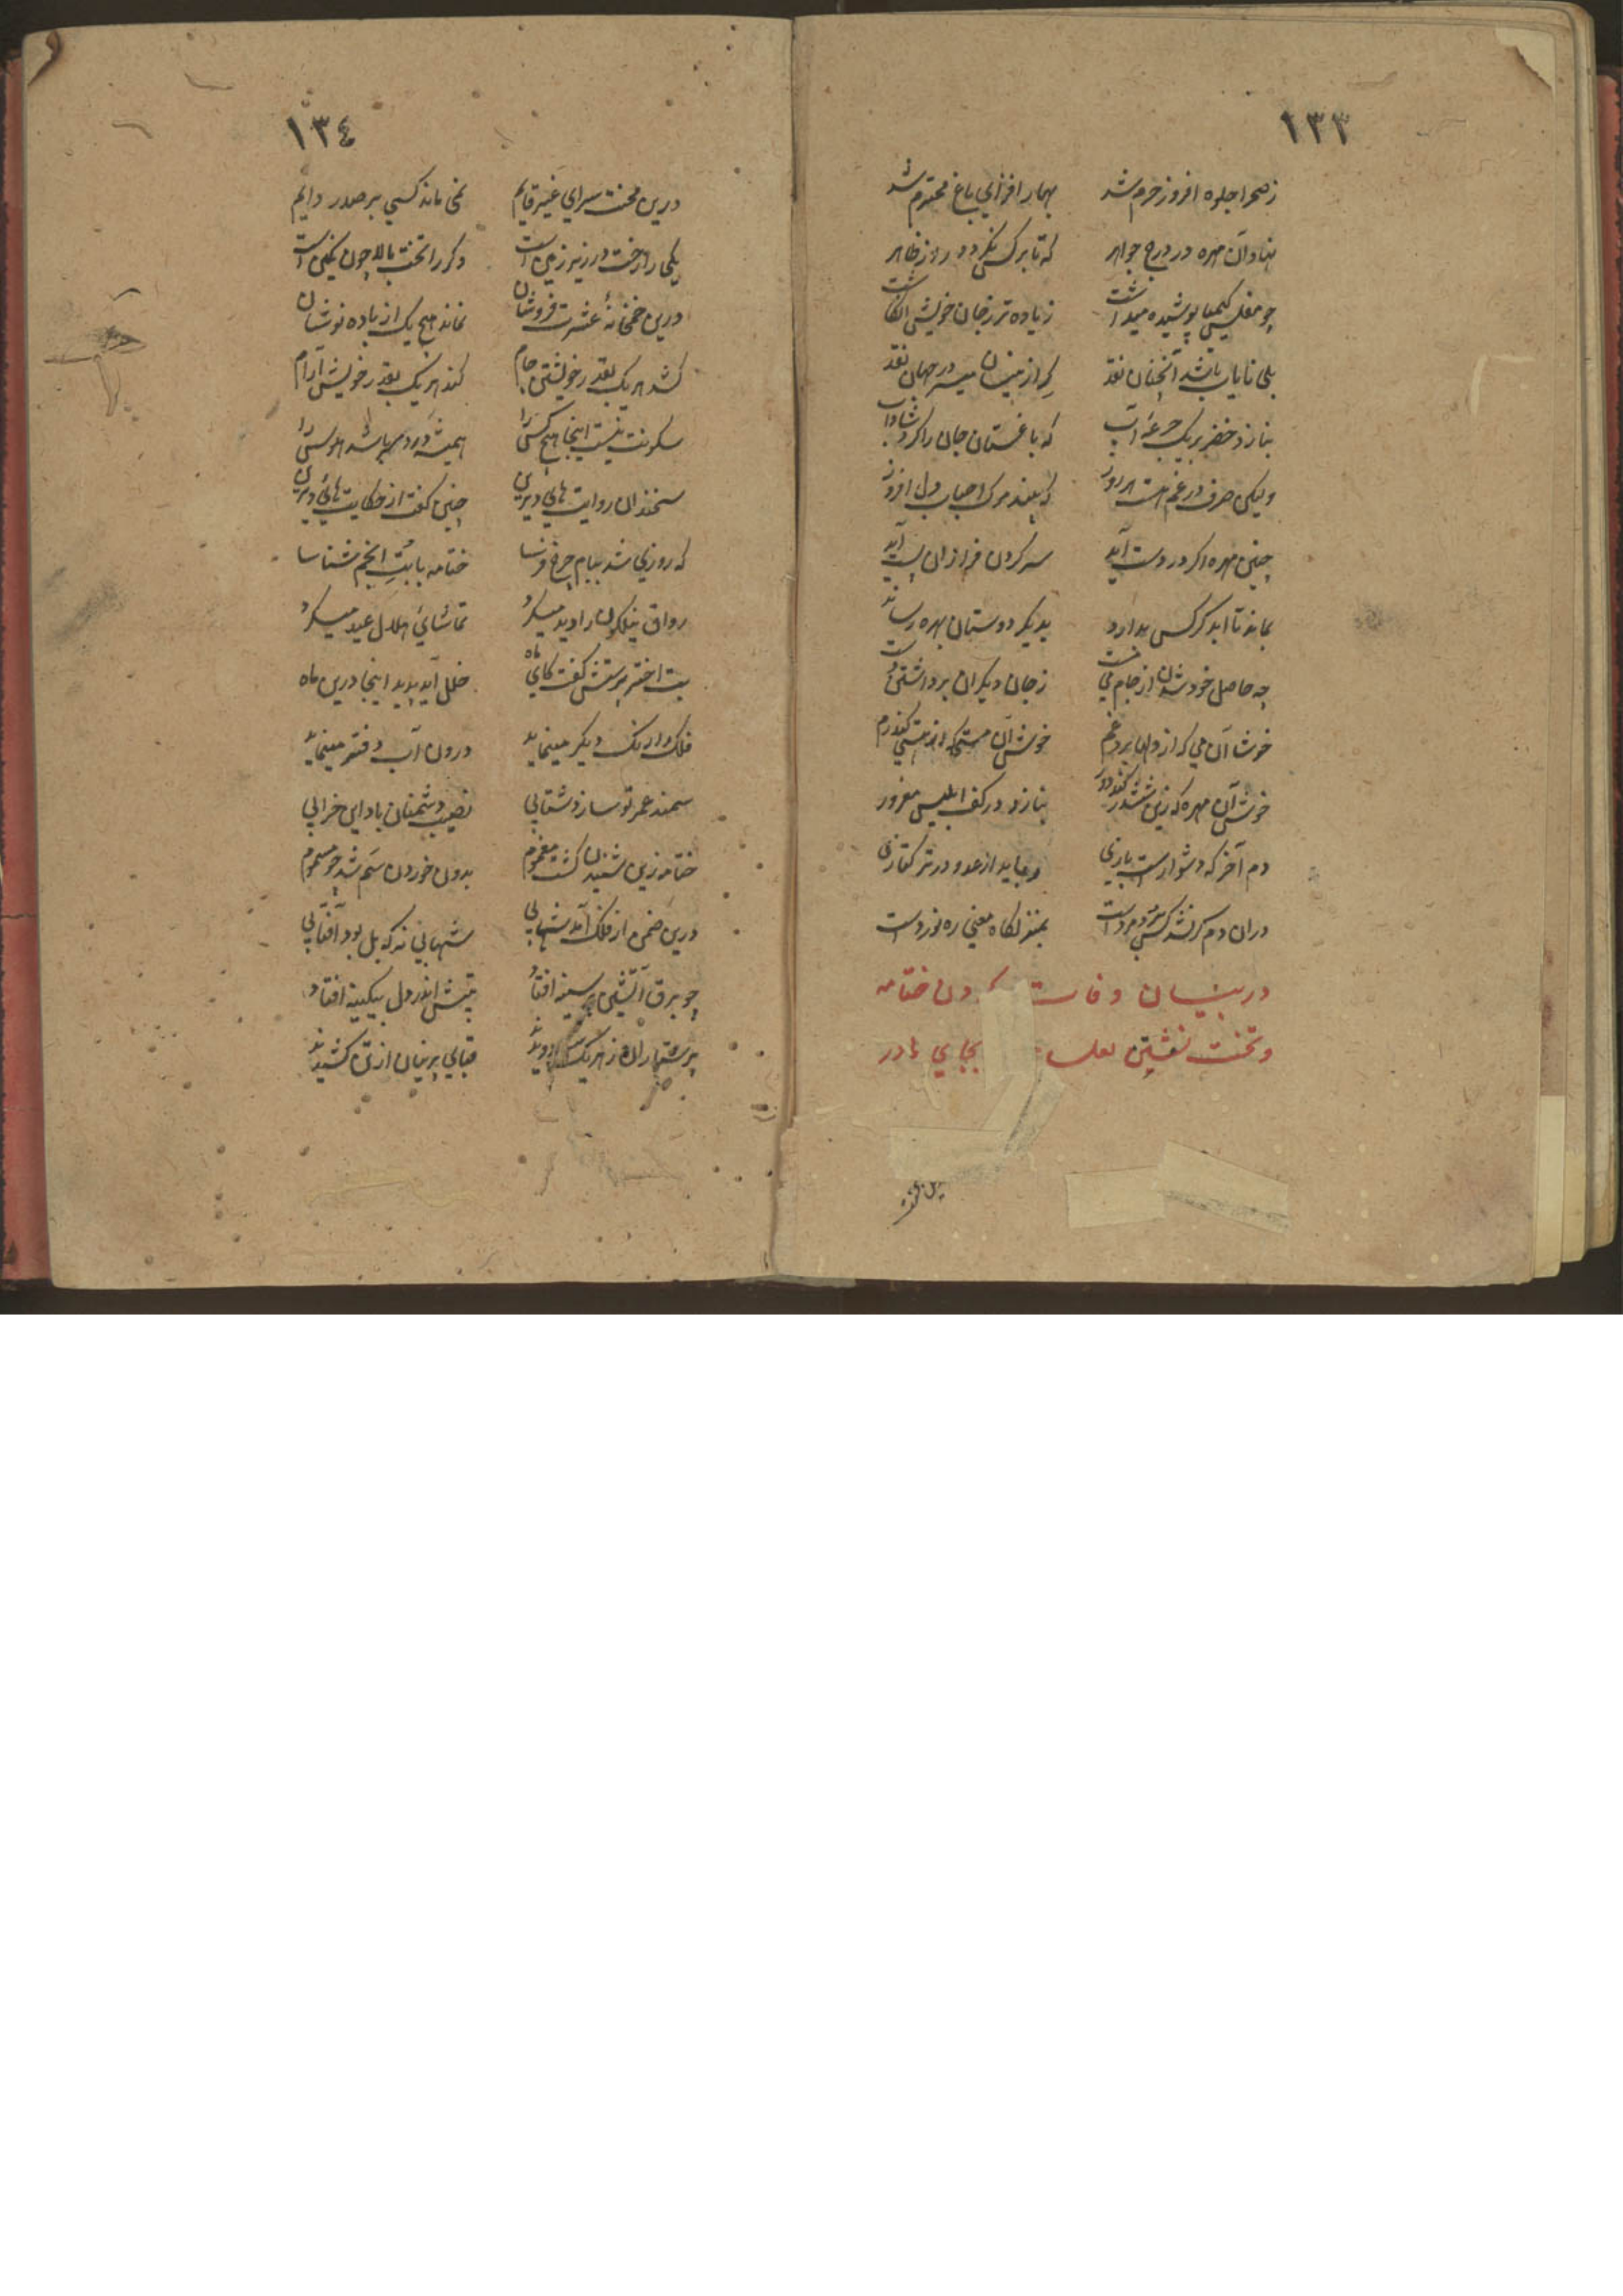 ١٣٣
ز صحرا جلوه افروز حرم شد بهار افزاي باغ محترم شد
نهاد آن مهره در درج جواهر که تا بر کس نکردد راز ظاهر
چو مفلس کیمیا پوشیده میداشت زیاده تر ز جان خویش انکاشت
بلی نایاب باشد آنچنان نقد که از میسر در جهان نقد
بنازد خضر بر یک جرعه آب که باغستان جان را کرد شاداب
ولیکن صرف در غم هست هر روز که بیند مرک احباب دل افروز
چنین مهره اکر در دست آید سر کردن فرازان پست آید
بماند تا ابد کر کس بدارد بدیکر دوستان بهره رساند
چه حاصل خود شدن از جام می مست ز جان دیکران برداشتن دست
خوشا آن می که از دلها برد غم خوش آن مستی که از هستی کند رم
خوش آن مهره که زین ششدر کند دور بنازد در کف ابلیس مغرور
دم آخر که دشوارست بازي
دران دم کر نشد کس مرد مردست بمنزلکاه معنی ره نوردست
در بیان وفات کردن ختامه
و تخت نشین لعل بجاي مادر
١٣٤
درین محنت سراي غیر قایم نمی ماند کسی بر صدر دایم
یکی را رخت در زیر زمین است دکر را تخت بالا چون نکین است
درین خمخانهٔ عشرت فروشان نماند هیچ یک از باده نوشان
کشد هر یک بقدر خویشتن جام کند هر یک بقدر خویش آرام
سکونت نیست اینجا هیچ کس را همیشه درد سر باشد هوس را
سخندان روایت هاي دیرین چنین کفت از حکایت هاي دیرین
که روزي شد ببام چرخ فرسا ختامه با بت انجم شناسا
رواق نیلکون را دید میکرد تماشاي هلال عید میکرد
بت اختر پرستش کفت کاي ماه خلل آید پدید اینجا درین ماه
فلک را رنک دیکر مینماید درون آب دفتر مینماید
سمند عمر تو سازد شتابی نصیب دشمنان باد این خرابی
ختامه زین شنیدن کشت مغموم بدون خوردن سم شد چو مسموم
درین ضمن از فلک آمد شهابی شهابی نه که بل بود آفتابی
چو برق آتشین بر سینه افتاد تپش اندر دل بیکینه افتاد
پرستاران ز هر یک سو دویدند قباي پرنیان از تن کشیدند